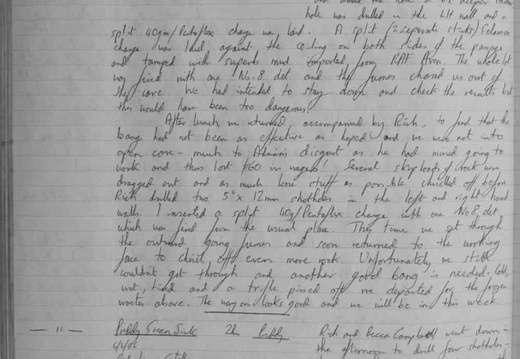 hole was drilled in the LH wall and a
split 40gm/Pentaflex charge was laid. A split (2 separate sticks) Solamon
charge was laid, against the ceiling on both sides of the passage
and tamped with superb mud imported from RAF Avon. The whole lot
was fired with one No. 8 det and the fumes chased us out of
the cave. We had intended to stay down and check the results but
this would have been too dangerous.
After lunch we returned, accompanied by Rich, to find that the
bang had not been as effective as hoped and we were not into
open cave - much to Adrian's disgust as he had missed going to
work and thus lost £60 in wages! Several skip loads of rock were
dragged out and as much loose stuff as possible chiselled off before
Rich drilled two 5" x 12mm shotholes in the left and right hand
walls. I inserted a split 40g/Pentaflex charge with one No. 8 det,
which was fired from the usual place. This time we got through
the outward going fumes and soon returned to the working
face to chisel off even more rock. Unfortunately, we still
couldn't get through and another good bang is needed. Cold,
wet, tired and a trifle pissed off we departed for the frozen
wastes above. The way on looks good and we will be in this week
— 11 — Priddy Green Sink 2hr Priddy Rich and Becca Campbell went down in
the afternoon to drill four shotholes -